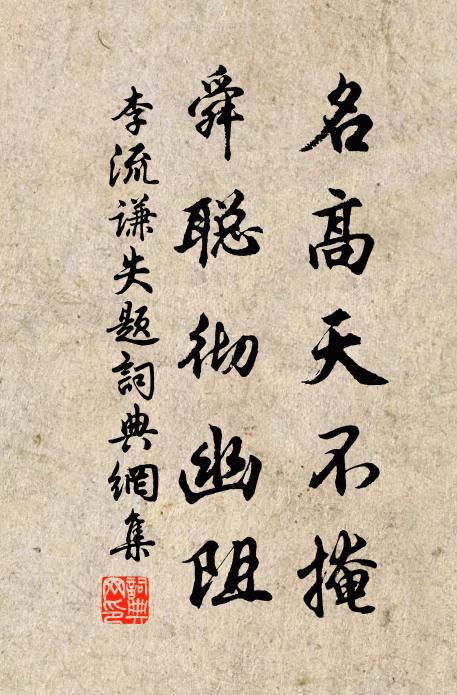 名高天不掩
舜聪彻幽阻
李流谦失题詞典網集
詞典网印